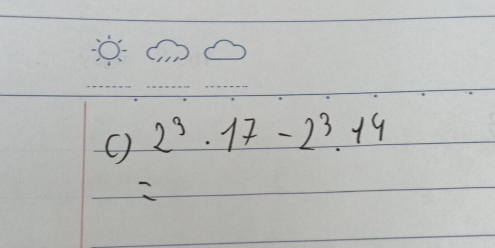 c) 2³ . 17 - 2³ . 14
=